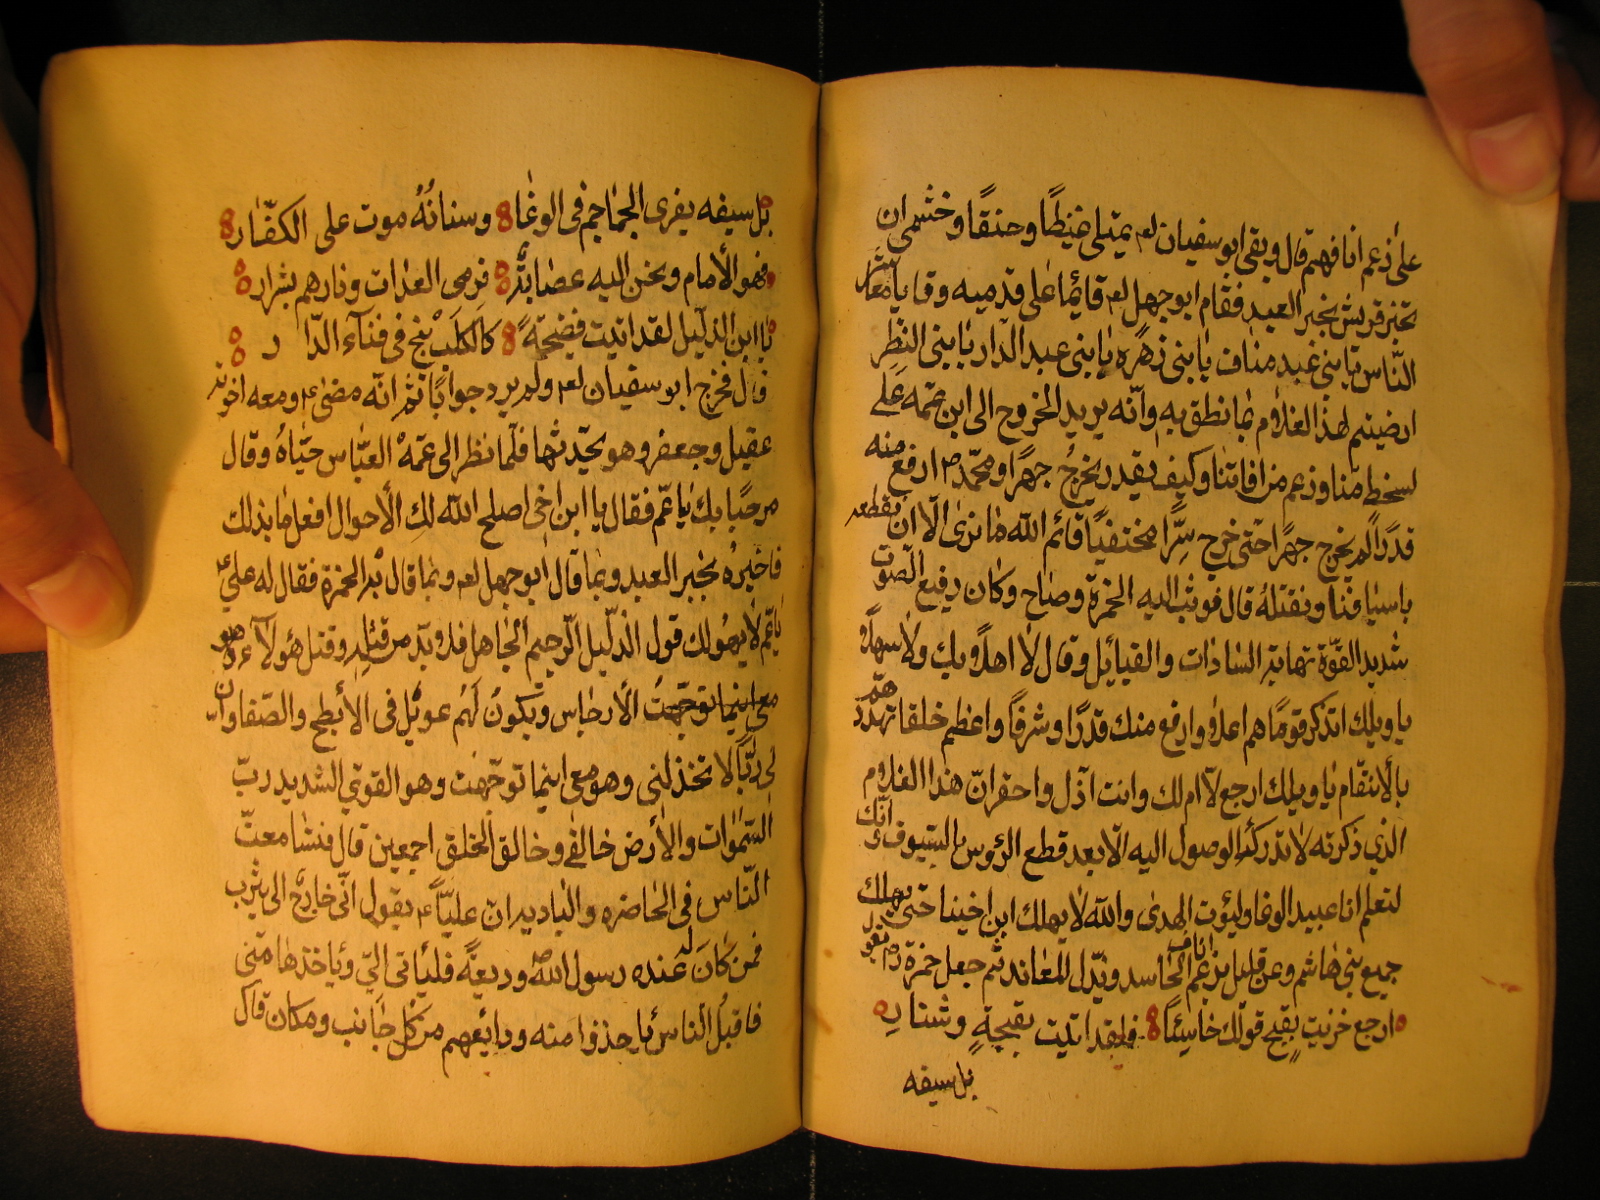 على زعم انافهم قال وبقى ابو سفيان لع يمتلى غيظًا وحنقًا وخشى ان
تخبر قريش بخبر العبد فقام ابو جهل لع قائما على قدميه وقا يا معاشر
النّاس يا بنى عبد مناف يا بنى زهره يا بنى عبد الدار يا بنى النضر
ارضيتم لهذا الغلام بما نطق به وانّه يريد الخروج الى ابن عمه على
لسخط منا وزعم من افاتنا وكيف يقدر يخرج جهرًا ومحمّد ص ارفع منه
قدرًا لم يخرج جهرًا حتى خرج سِرًّا مختفيًا فائم الله ما نرى الّا ان نقطعه
باسيافنا ونقتله قال فوثب اليه الحمزة وصاح وكان رفيع الصّوت
شديد القوّة تهابه السّادات والقبايل وقال لا اهلاً بك ولا سهلاً
يا ويلك اتذكر قومًا هم اعلا وارفع منك قدرًا وشرفًا واعظم خلقا تهدّدهم
بالأنتقام يا ويلك ارجع لا ام لك وانت اذل واحقر انّ هذا الغلام
الذي ذكرته لا تدرك الوصول اليه الّا بعد قطع الرّوس بالسّيوف انّك
لتعلم انا عبيد الوغا وليوث الهدى والله لا يهلك ابن اخينا حتى يهلك
جميع بنى هاشم وعن قليل يرغم اناف الحاسد ويذل المعاند ثم جعل حمزة يقول
ارجع خزيت بقبح قولك خاسئًا فلقد اتيت بقبحةٍ وشنارِ
بل سيفه
بل سيفه يفرى الجماجم فى الوغا وسنانُهُ موت على الكفّار
فهو الأمام ونحن اليه عصابةٌ نرمى العدات ونارهم بشرار
يا ابن الذليل لقد اتيت فضيحةً كالكلب ينبح فى فناء الدّار
قال فخرج ابو سفيان لع ولم يرد جوابًا ثم انّه مضى ع ومعه اخوته
عقيل وجعفر وهو يحدّثهما فلما نظر الى عمّه العبّاس حيّاهُ وقال
مرحبًا بك يا عم فقال يا ابن اخى اصلح الله لك الأحوال افعل ما بذلك
فاخبرهُ بخبر العبد وبما قال ابو جهل لع وبما قال له الحمزة فقال له علي ع
يا عم لا يهولك قول الذليل الرجيم الجاهل فلابد من قتله وقتل هؤلآء
معى اينما توجّهتُ الأرجاس ويكونُ لهم عويل فى الأبطح والصّفا وان
لى ربًّا لا يخذلنى وهو معى اينما توجّهت وهو القوىّ الشديد ربّ
السّموات والأرض خالقى وخالق الخلق اجمعين قال فنشا معث
النّاس فى الحاضره والباديه ان عليًّا ع يقول انّى خارج الى يثرب
فمن كان له عنده رسول الله ص وديعةً فليأتى اليّ وياخذها منّى
فاقبل النّاس ياخذوا منه ودايعهم من كل جانب ومكان قال